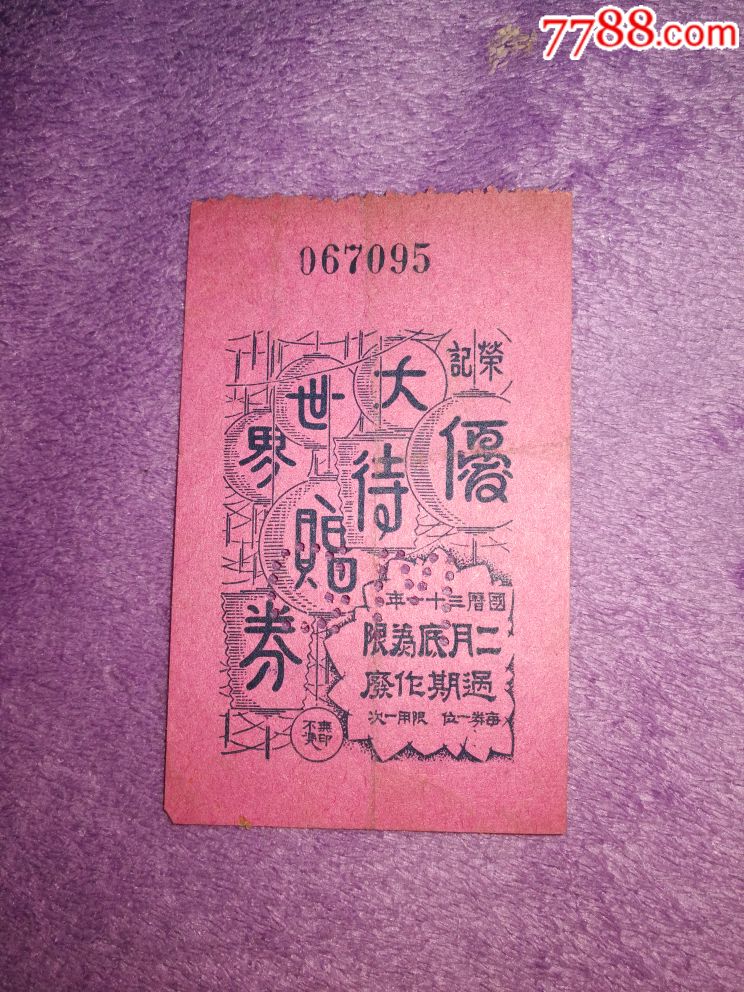 7788.com
067095
榮記
大世界
優待贈券
國曆三十一年
二月底為限
過期作廢
每券一位 限用一次
無印不準